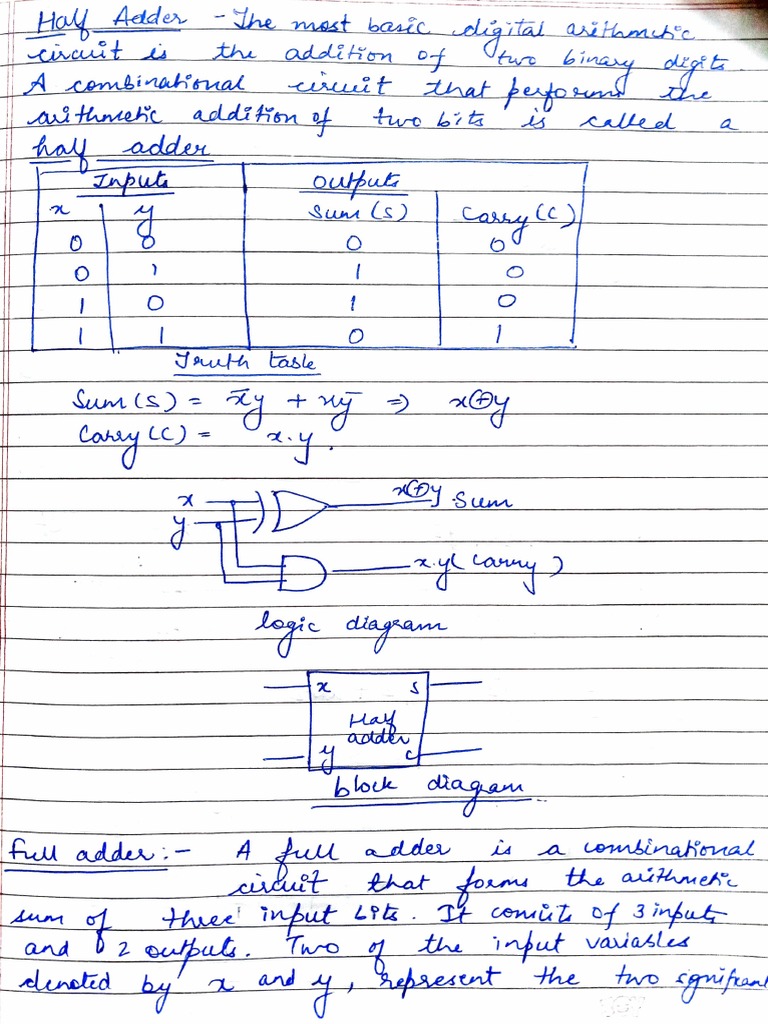 Half Adder - The most basic digital arithmetic
circuit is the addition of two binary digits.
A combinational circuit that performs the
arithmetic addition of two bits is called a
half adder
Inputs outputs
x y Sum (S) Carry (C)
0 0 0 0
0 1 1 0
1 0 1 0
1 1 0 1
Truth table
Sum (S) = x̄y + xȳ ⇒ x⊕y
Carry (C) = x.y.
x x⊕y Sum
y
x.y( Carry )
logic diagram
x S
Half
adder
y C
block diagram
Full adder :- A full adder is a combinational
circuit that forms the arithmetic
sum of three input bits. It consists of 3 inputs
and 2 outputs. Two of the input variables
denoted by x and y, represent the two significant